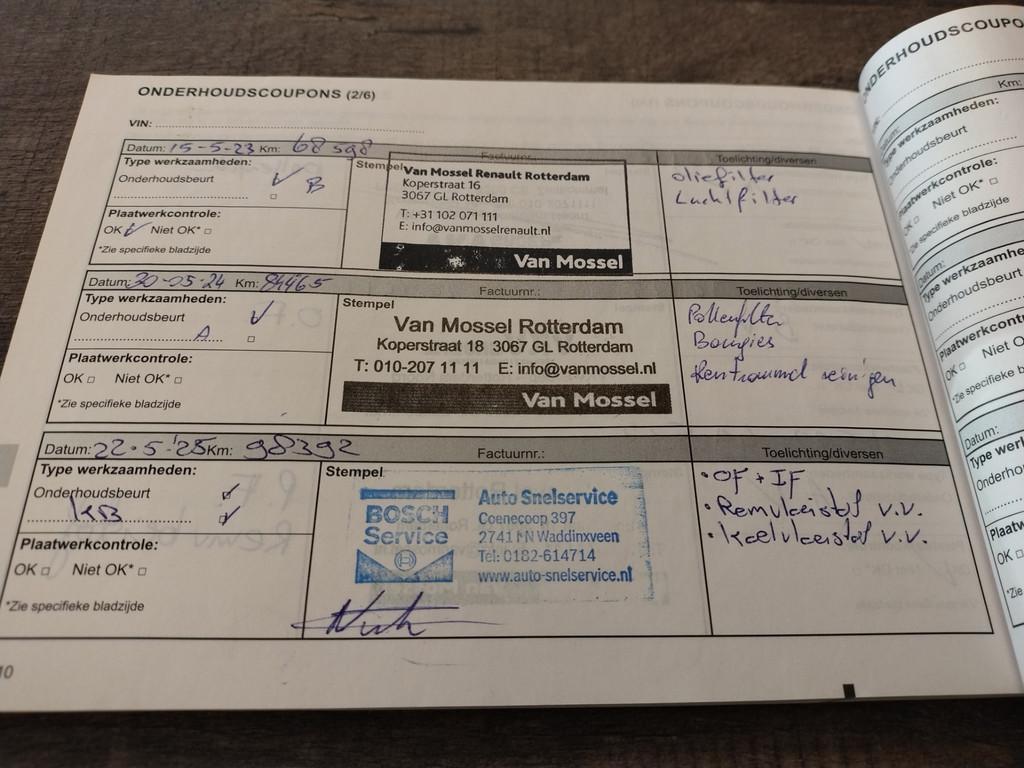 ONDERHOUDSCOUPONS (2/6)
VIN:
Datum: 15-5-23 Km: 68 598 Factuurnr.: Toelichting/diversen
Type werkzaamheden:
Onderhoudsbeurt B
Plaatwerkcontrole:
OK Niet OK*
*Zie specifieke bladzijde
Stempel
Van Mossel Renault Rotterdam
Koperstraat 16
3067 GL Rotterdam
T: +31 102 071 111
E: info@vanmosselrenault.nl
Van Mossel
oliefilter
Luchtfilter
Datum: 30-05-24 Km: 84465 Factuurnr.: Toelichting/diversen
Type werkzaamheden:
Onderhoudsbeurt
A
Plaatwerkcontrole:
OK Niet OK*
*Zie specifieke bladzijde
Stempel
Van Mossel Rotterdam
Koperstraat 18 3067 GL Rotterdam
T: 010-207 11 11 E: info@vanmossel.nl
Van Mossel
Pollenfilter
Bougies
reinigen
Datum: 22-5-'25 Km: 98392 Factuurnr.: Toelichting/diversen
Type werkzaamheden:
Onderhoudsbeurt
KB
Plaatwerkcontrole:
OK Niet OK*
*Zie specifieke bladzijde
Stempel
BOSCH
Service
Auto Snelservice
Coenecoop 397
2741 PN Waddinxveen
Tel: 0182-614714
www.auto-snelservice.nl
• OF + IF
• Remvloeistof v.v.
• Koelvloeistof v.v.
10
ONDERHOUDSCOUPO
Km:
Type werkzaamheden:
Onderhoudsbeurt
Plaatwerkcontrole:
OK Niet OK*
*Zie specifieke bladzijde
Datum:
Type werkzaamhe
Onderhoudsbeurt
Plaatwerkcontr
OK Niet O
*Zie specifieke bla
Datum:
Type werk
Onderho
Plaatw
OK
*Zie